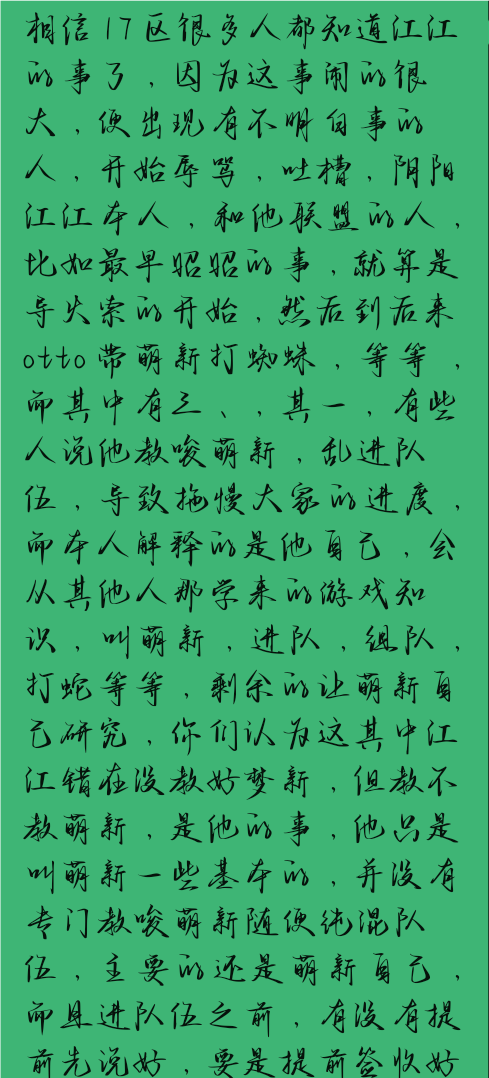 相信17区很多人都知道江江
的事了，因为这事闹的很
大，便出现有不明白事的
人，开始辱骂，吐槽，阴阳
江江本人，和他联盟的人，
比如最早昭昭的事，就算是
导火索的开始，然后到后来
otto带萌新打蜘蛛，等等，
而其中有三、，其一，有些
人说他教唆萌新，乱进队
伍，导致拖慢大家的进度，
而本人解释的是他自己，会
从其他人那学来的游戏知
识，叫萌新，进队，组队，
打蛇等等，剩余的让萌新自
己研究，你们认为这其中江
江错在没教好梦新，但教不
教萌新，是他的事，他只是
叫萌新一些基本的，并没有
专门教唆萌新随便纯混队
伍，主要的还是萌新自己，
而且进队伍之前，有没有提
前先说好，要是提前签收好